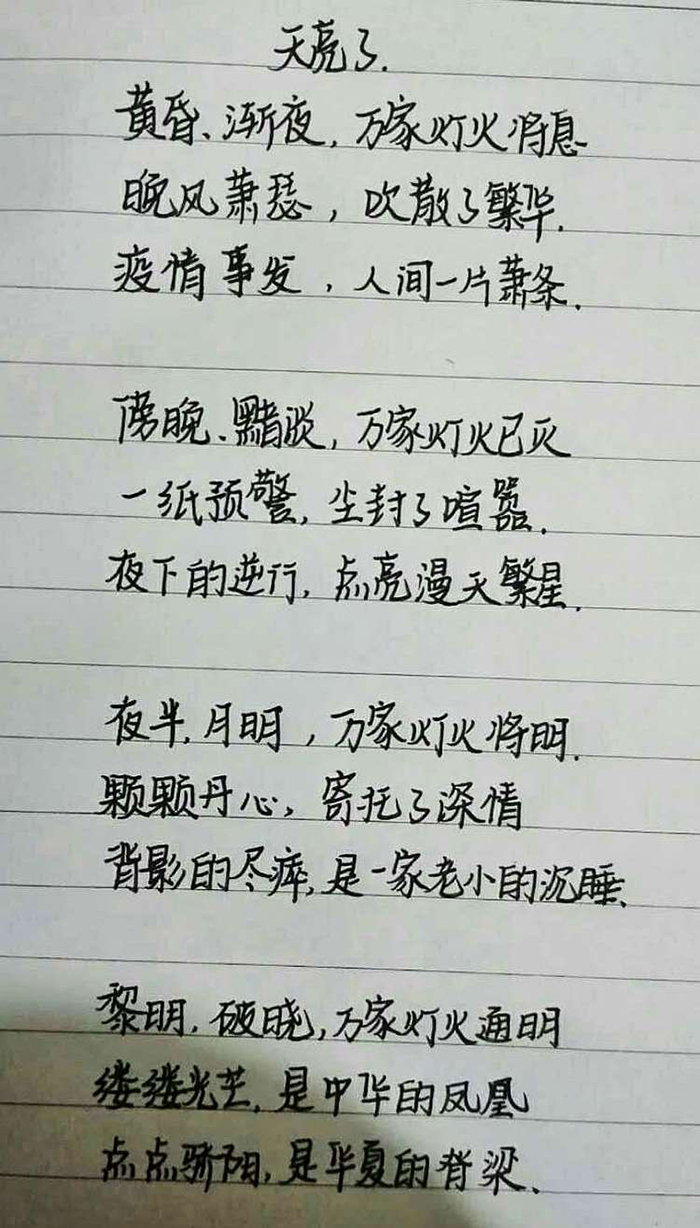 天亮了.
黄昏、渐夜,万家灯火将息
晚风萧瑟,吹散了繁华.
疫情事发,人间一片萧条.
傍晚、黯淡,万家灯火已灭
一纸预警,尘封了喧嚣.
夜下的逆行,点亮漫天繁星.
夜半,月明,万家灯火将明.
颗颗丹心,寄托了深情
背影的尽瘁,是一家老小的沉睡.
黎明,破晓,万家灯火通明
缕缕光芒,是中华的凤凰
点点骄阳,是华夏的脊梁.